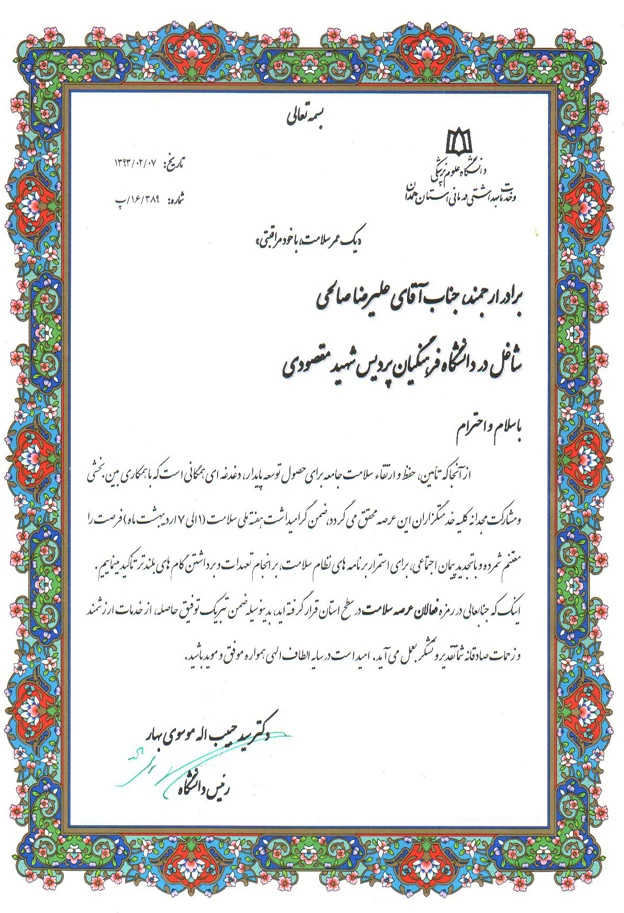 بسمه تعالی
دانشگاه علوم پزشکی
و خدمات بهداشتی درمانی استان همدان
تاریخ: ۱۳۹۳/۰۲/۰۷
شماره: ۱۶/۳۸۹/پ
«یک عمر سلامت، با خود مراقبتی»
برادر ارجمند، جناب آقای علیرضا صالحی
شاغل در دانشگاه فرهنگیان پردیس شهید مقصودی
با سلام و احترام
از آنجا که تأمین، حفظ و ارتقاء سلامت جامعه برای حصول توسعه پایدار، دغدغه ای همگانی است که با همکاری بین بخشی
و مشارکت مجدانه کلیه خدمتگزاران این عرصه محقق می گردد، ضمن گرامیداشت هفته ملی سلامت (۱ الی ۷ اردیبهشت ماه) فرصت را
مغتنم شمرده و با تجدید پیمان اجتماعی، برای استمرار برنامه های نظام سلامت، بر انجام تعهدات و برداشتن گام های بلندتر تأکید مینماییم.
اینک که جنابعالی در زمره فعالان عرصه سلامت در سطح استان قرار گرفته اید، بدینوسیله ضمن تبریک توفیق حاصله، از خدمات ارزشمند
و زحمات صادقانه شما تقدیر و تشکر بعمل می آید. امید است در سایه الطاف الهی همواره موفق و موید باشید.
دکتر سید حبیب اله موسوی بهار
رئیس دانشگاه